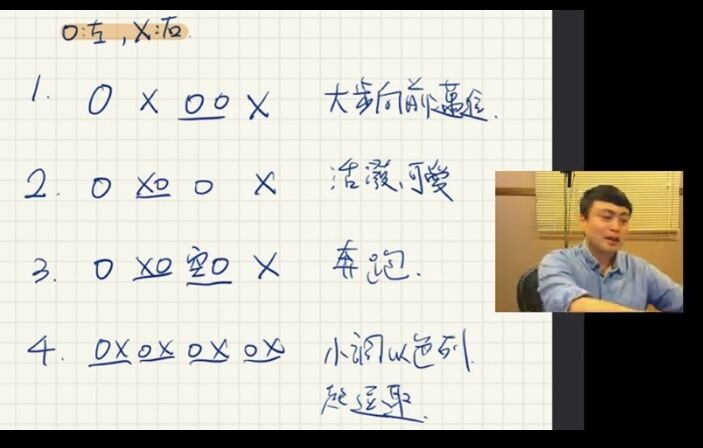 O:左,X:右
1. O X OO X 大步向前邁進.
2. O XO O X 活潑、可愛
3. O XO 空O X 奔跑.
4. OX OX OX OX 小調以色列